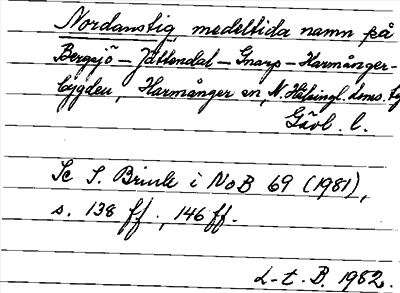 Nordanstig medeltida namn på
Bergsjö – Jättendal – Gnarp – Harmånger-
bygden, Harmånger sn, N. Hälsingl. doms.
Gävl. l.
Se S. Brink i NoB 69 (1981),
s. 138 ff., 146 ff.
L-t. B. 1982.